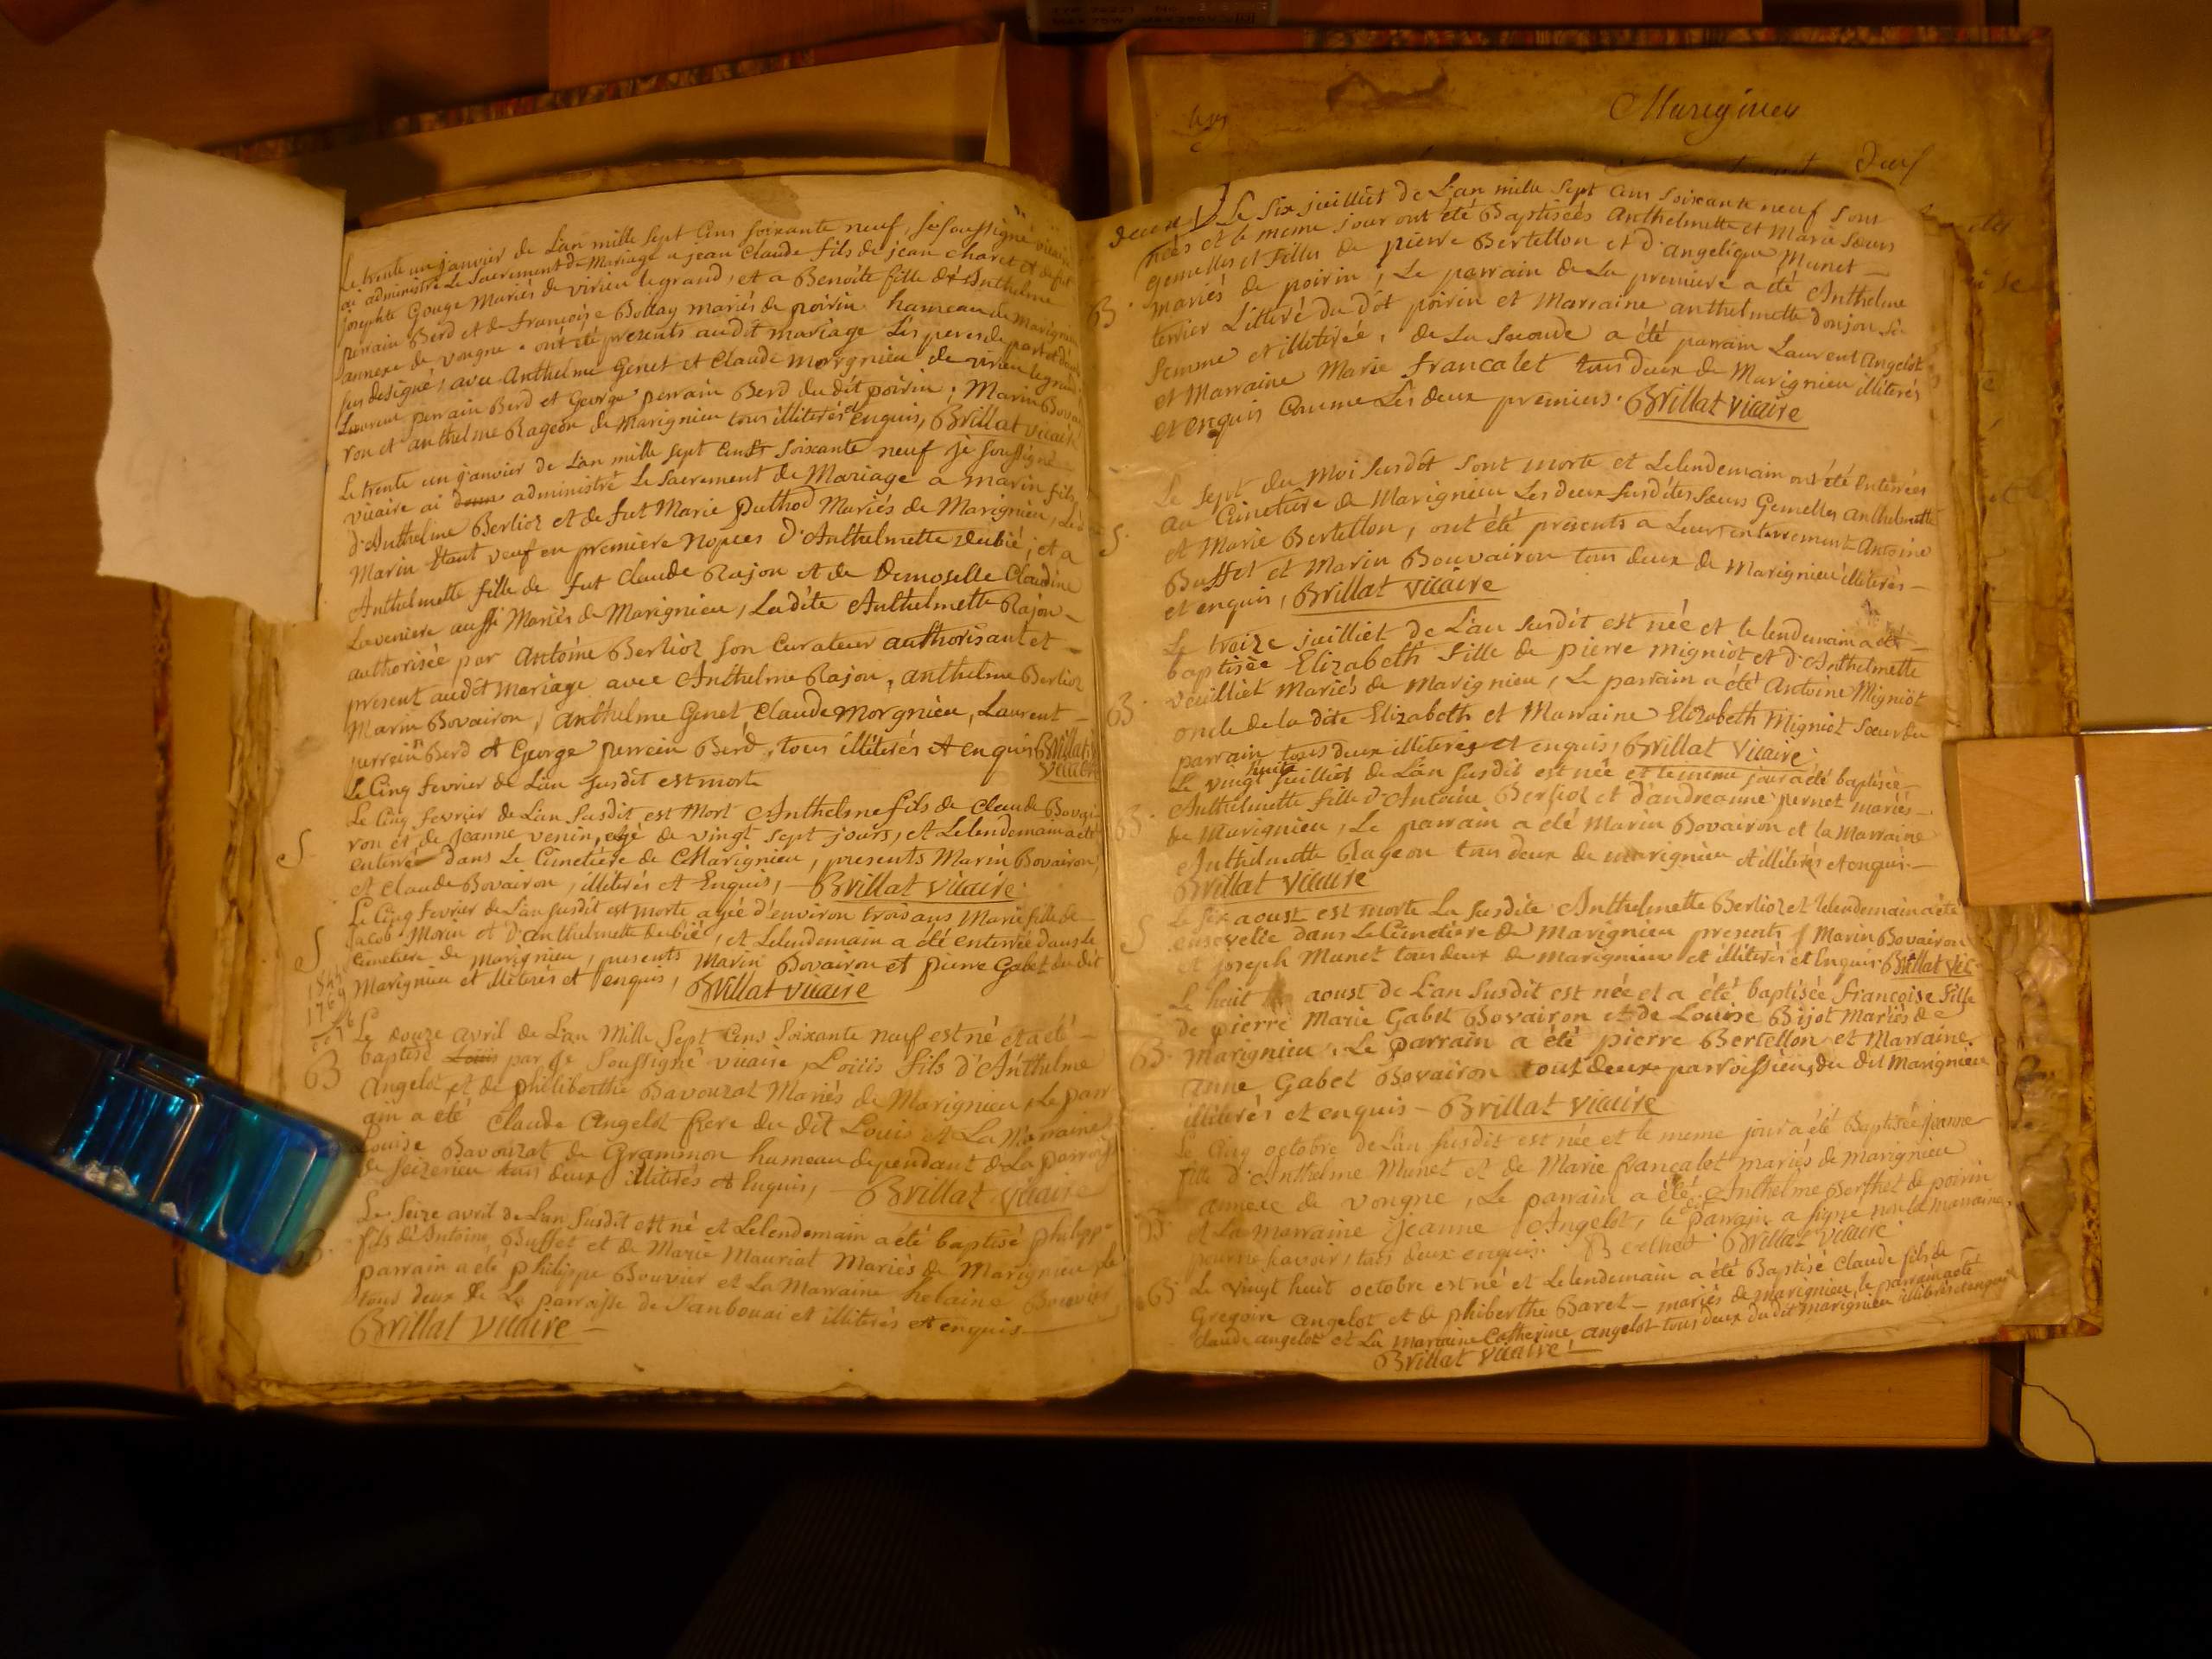 Le trente un janvier de L'an mille sept Cens soixante neuf, je soussigné vicaire
ai administré Le Sacrement de Mariage a jean Claude fils de jean charet et de fut
josephte Gouge Mariés de virieu legrand, et a Benoite fille de Anthelme
perrain Berd et de françoise Bollay mariés de poirin hameau de marignieu
annexe de vongne. ont été presents audit mariage Les peres de part et d'autre
sus designé, avec Anthelme Genet et Claude Morgnieu de virieu legrand,
Laurent perrain Berd et George perrain Berd du dit poirin; Marin Bovai
ron et anthelme Rageon de Marignieu tous illiterés et enquis, Brillat vicaire
Le trente un janvier de L'an mille sept Cents soixante neuf je soussigné
vicaire ai administré Le sacrement de Mariage a marin fils
d'Anthelme Berlioz et de fut Marie puthod Mariés de Marignieu, Le dit
Marin Etant veuf en premiere Nopces D'Anthelmette Dubié; et a
Anthelmette fille de fut Claude Rajon et de Demoiselle Claudine
Laveniere aussi Mariés de Marignieu, Ladite Anthelmette Rajon
authorisée par Antoine Berlioz son Curateur authorisant et
present audit Mariage avec Anthelme Rajon, anthelme Berlioz
Marin Bovairon, Anthelme Genet, Claude Morgnieu, Laurent
perrain Berd et George perrein Berd, tous illiterés et enquis Brillat
vicaire
Le Cinq fevrier de L'an susdit est morte
Le Cinq fevrier de L'an susdit est Mort Anthelme fils de Claude Bovai
S ron et de Jeanne venin, agé de vingt sept jours, et Lelendemain a été
enterré dans Le Cimetiére de Marignieu, presents Marin Bovairon,
et Claude Bovairon, illiterés et Enquis, Brillat vicaire.
Le Cinq fevrier de L'an susdit est morte agée d'environ trois ans Marie fille de
S Jacob Morin et d'anthelmette dubié, et Lelendemain a été enterrée dans le
cimetiere de Marignieu, presents Marin Bovairon et pierre Gabet du dit
Marignieu et illiterés et enquis, Brillat vicaire
1769
Le douze avril de L'an Mille Sept Cens soixante neuf est né et a été
B baptisé Louis par Je soussigné vicaire, Louis fils d'Anthelme
Angelot et de philiberthe Bavouzat Mariés de Marignieu, Le parr
ain a été Claude Angelot frere du dit Louis et La Marraine
Louise Bavouzat de Grammon hameau dependant de La parroisse
de seizerieu tous deux illiterés et Enquis, Brillat vicaire
Le Seize avril de L'an susdit est né et Lelendemain a été baptisé philippe
fils d'Antoine Buffet et de Marie Mauriat Mariés de Marignieu, le
parrain a été philippe Bouvier et La Marraine helaine Bouvier
tous deux de La parroisse de Sanbouai et illiterés et enquis
Brillat vicaire
Marignieu
Le Six juilliet de L'an mille Sept Cens soixante neuf sont
nées et le meme jour ont été Baptisées Anthelmette et Marie sœurs
gemelles et filles de pierre Bertellon et d'Angelique Munet
B. mariés de poirin, Le parrain de La premiere a été Anthelme
terrier Litteré du dit poirin et Marraine anthelmette donjon sa
femme et illiterée, de La seconde a été parrain Laurent Angelot
et Marraine Marie francalet tous deux de Marignieu illiterés
et enquis Comme Les deux premiers. Brillat vicaire
Le sept du Moi susdit sont morte et Lelendemain ont été Enterrées
au Cimetiére de Marignieu Les deux susdites sœurs Gemelles anthelmette
S. et Marie Bertellon, ont été présents a Leur enterrement Antoine
Buffet et Marin Bouvairon tous deux de Marignieu illiterés
et enquis, Brillat vicaire
Le treize juilliet de L'an susdit est née et le lendemain a été
baptisée Elizabeth fille de pierre Migniot et d'Anthelmette
B. veuilliet Mariés de Marignieu, Le parrain a été Antoine Migniot
oncle de la dite Elizabeth et Marraine Elizabeth Migniot sœur du
parrain tous deux illiterés et enquis, Brillat vicaire
Le vingt huit juilliet de L'an susdit est née et le meme jour a été baptisée
B. Anthelmette fille d'Antoine Berlioz et d'andreanne pernet mariés
de Marignieu, Le parrain a été Marin Bovairon et la Marraine
Anthelmette Rageon tous deux de marignieu et illiterés et enquis
Brillat vicaire
Le six aoust est morte La susdite Anthelmette Berlioz et Lelendemain a été
S ensevelie dans Le Cimetiére de Marignieu presents Marin Bovairon
et joseph Munet tous deux de marignieu et illiterés et Enquis Brillat vic
Le huit aoust de L'an susdit est née et a été baptisée françoise fille
de pierre Marie Gabet Bovairon et de Louise Bijot Mariés de
B. Marignieu. Le parrain a été pierre Bertellon et Marraine
anne Gabet Bovairon tous deux parroissiens du dit Marignieu
illiterés et enquis – Brillat vicaire
Le Cinq octobre de L'an susdit est née et le meme jour a été Baptisée jeanne
fille d'Anthelme Munet et de Marie francalet mariés de marignieu
annexe de vongne, Le parrain a été Anthelme Berthet de poirin
B. et La marraine Jeanne Angelot, le dit parrain a signé non la marraine
pour ne savoir, tous deux enquis. Berthet Brillat vicaire
B Le vingt huit octobre est né et Lelendemain a été Baptisé Claude fils de
Gregoire angelot et de phiberthe Baret – mariés de marignieu, le parrain a été
Claude angelot et La Marraine Catherine angelot tous deux du dit marignieu illiterés et enquis
Brillat vicaire